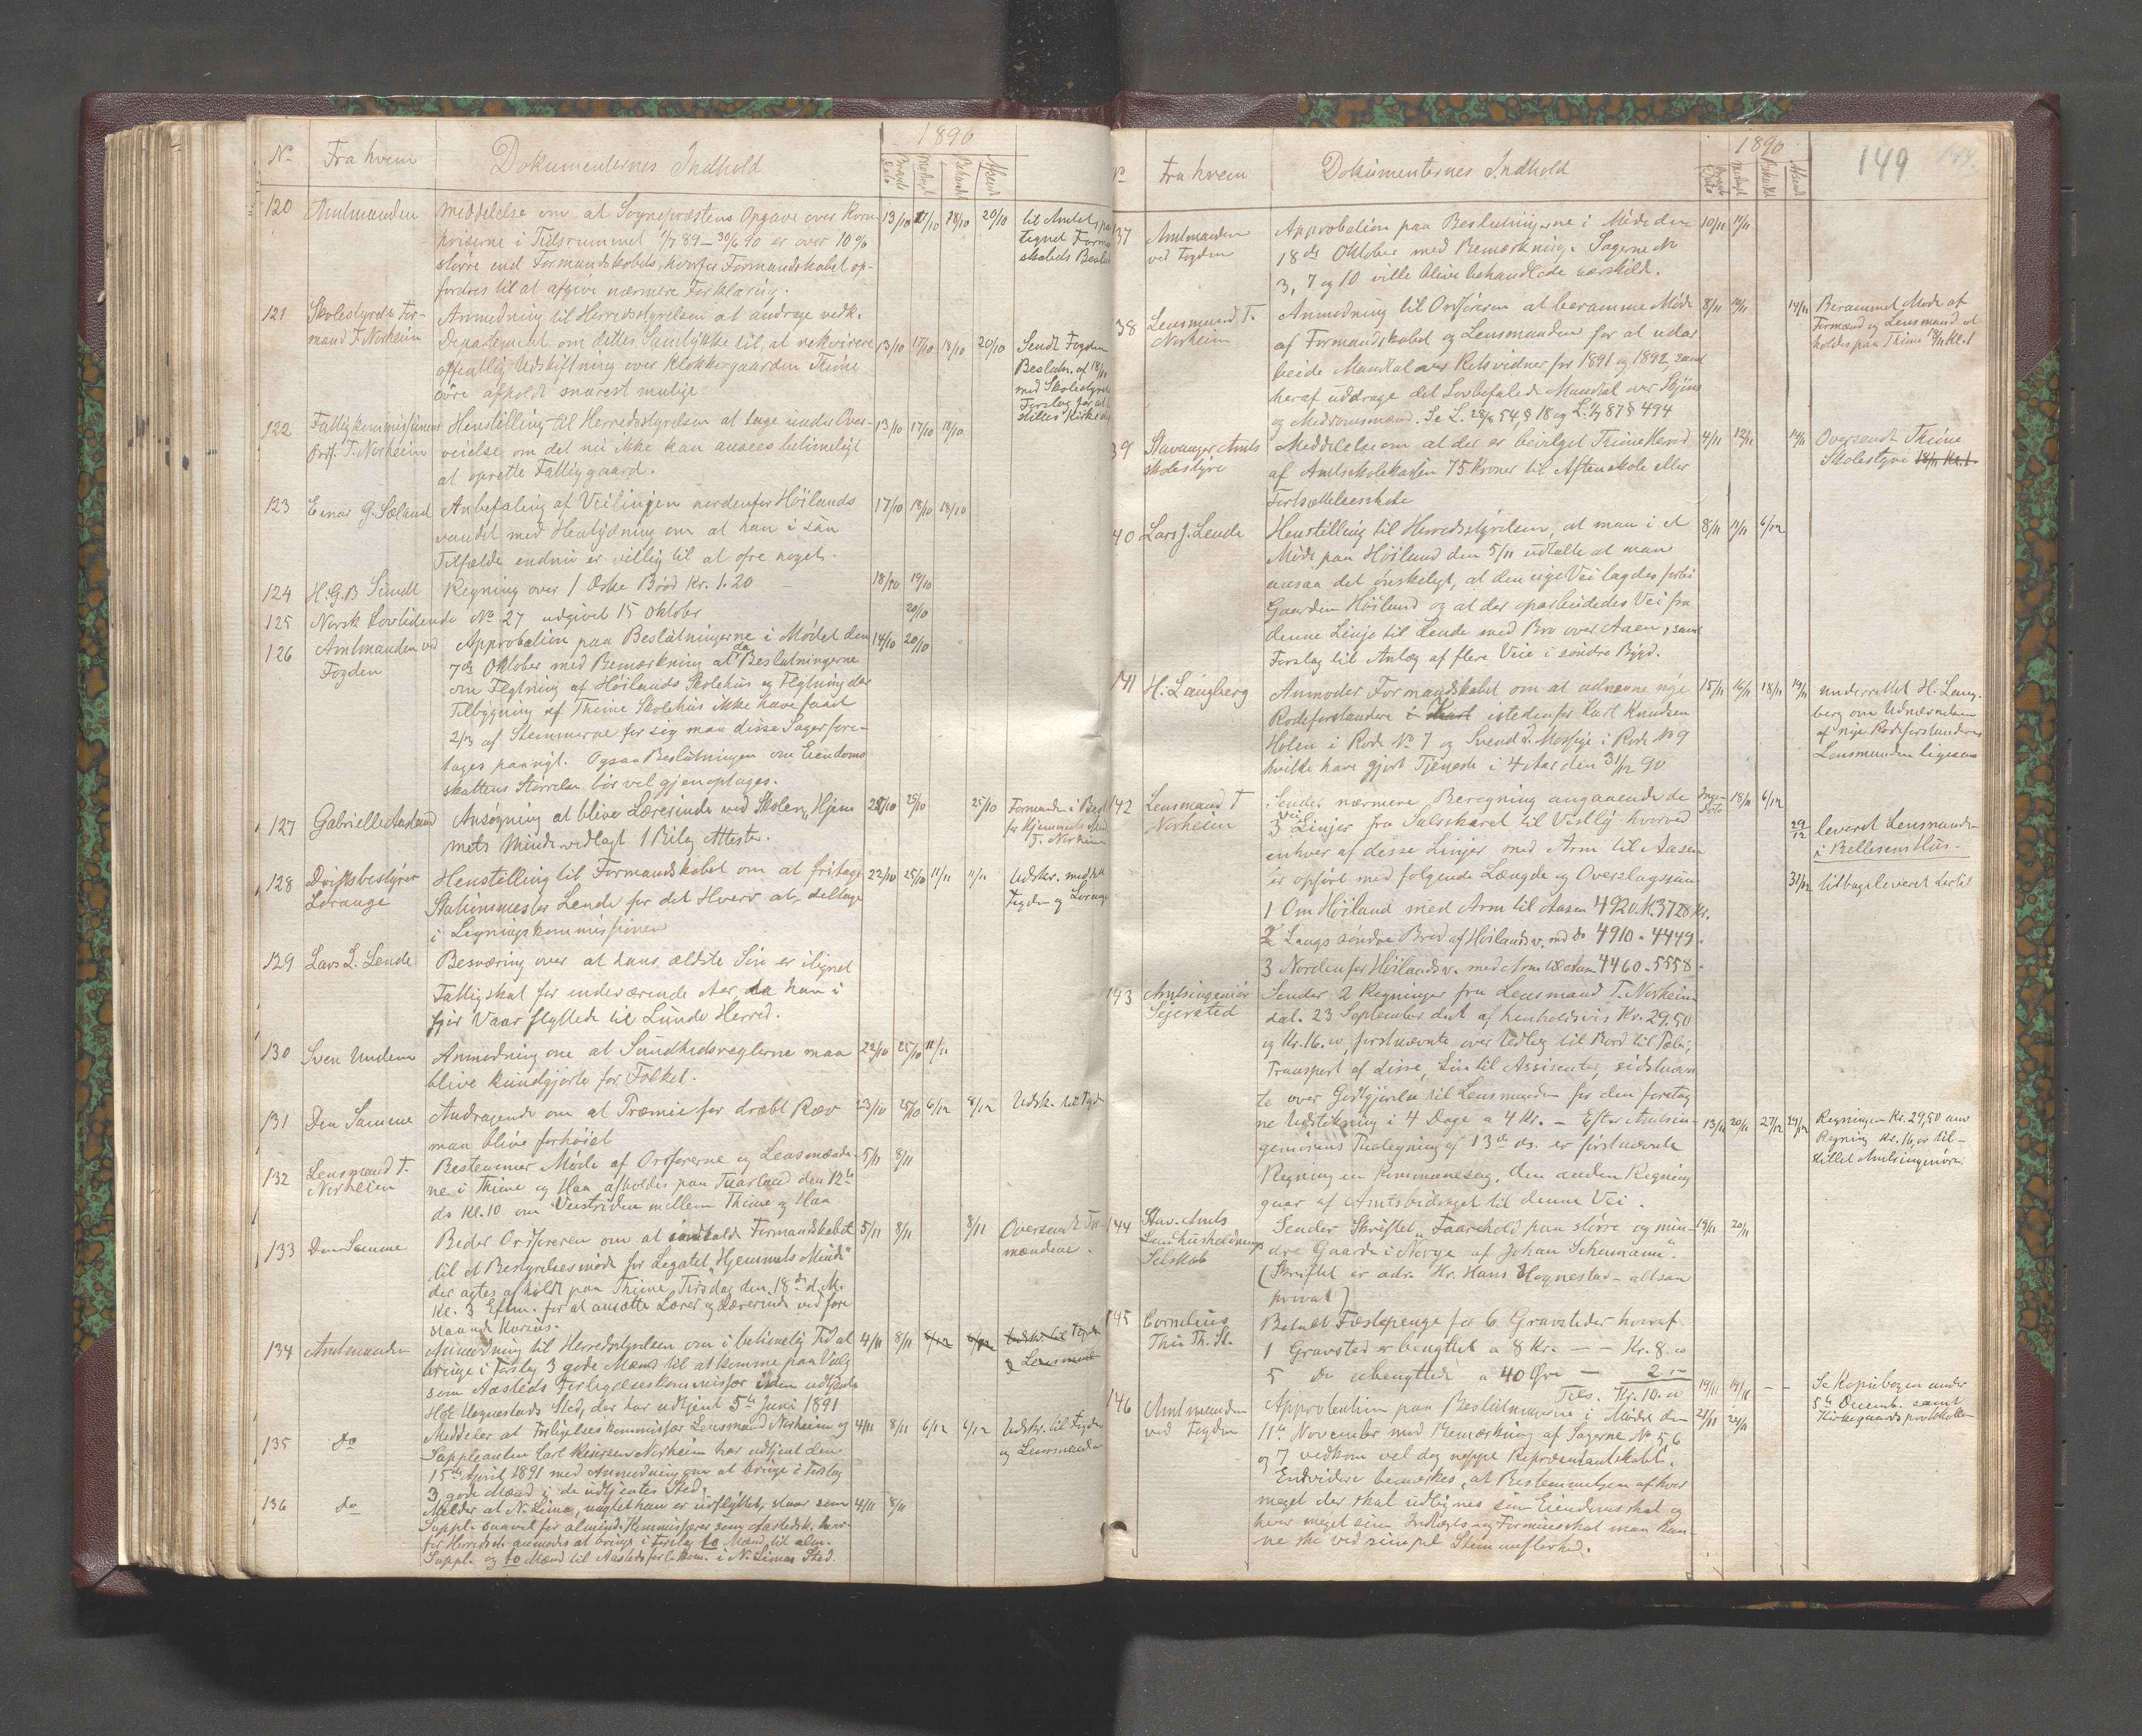 1890
No Fra hvem Dokumenternes Indhold
Brevets Dato Modtaget Behandlet Afsendt
120 Amtmanden Meddelelse om at Sognepræstens Opgave over Korn- 13/10 17/10 18/10 20/10 til Amtet,
priserne i Tidsrummet 1/7 89 – 30/6 90 er over 10%
større end Formandskabets, hvorfor Formandskabet op-
fordres til at afgive nærmere Forklaring.
121 Skolestyrets For- Anmodning til Herredsstyrelsen at andrage vedk.
mand T. Norheim Departement om dettes Samtykke til, at rekvirere 13/10 17/10 18/10 20/10 Sendt Fogden
offentlig Udskiftning over Klokkergaarden Thime Beslutn. af 18/10
øvre afholdt snarest mulig med Skolestyrets
Forslag
122 Fattigkommissionens Henstilling til Herredsstyrelsen at tage under Over- 13/10 17/10 18/10
Ordf. T. Norheim veielse om det nu ikke kan ansees betimeligt
at oprette Fattiggaard.
123 Enar G. Sæland Anbefaling af Veilinjen nordenfor Höilands 17/10 18/10 18/10
vandet med Hentydning om at han i saa
Tilfælde endnu er villig til at ofre noget.
124 H.G.B Sundt Regning over 1 Æske Bröd Kr. 1.20 18/10 19/10
125 Norsk Lovtidende No 27 udgivet 15 Oktober 20/10
126 Amtmanden ved Approbation paa Beslutningerne i Mödet den 14/10 20/10
Fogden 7de Oktober med Bemærkning at da Beslutningerne
om Flytning af Höilands Skolehus og Flytning eller
Tilbygning af Thime Skolehus ikke have faaet
2/3 af Stemmerne for sig maa disse Sager fore-
tages paanyt. Ogsaa Beslutningen om Eiendoms
skattens Störrelse bör vel gjenoptages.
127 Gabrielle Aasland Ansøgning at blive Lærerinde ved Skolen „Hjem 25/10 25/10 Formanden i
mets Minde“ vedlagt 1 Bilag Attester. T. Norheim
128 Driftsbestyrer Henstilling til Formandskabet om at fritage 22/10 25/10 11/11 11/11 Udskr. meddelt
Lorange Stationsmester Lende for det Hverv at deltage Fogden og Lorange
i Ligningskommissionen
129 Lars L. Lende Besværing over at hans ældste Sön er ilignet
Fattigskat for indeværende Aar da han i
fjor Vaar flyttede til Lunde Herred.
130 Sven Undem Anmodning om at Sundhedsreglerne maa 22/10 25/10 11/11
blive kundgjorte for Folket.
131 Den Samme Andragende om at Præmie for dræbt Ræv 23/10 25/10 6/12 8/12 Udsk. til Fogden
maa blive forhöiet
132 Lensmand T. Bestemmer Möde af Ordførerne og Lensmænde- 5/11 8/11
Norheim ne i Thime og Haa afholdes paa Tuarland den 12te
ds Kl. 10 om Veistriden mellem Thime og Haa
133 Den Samme Beder Ordföreren om at indkalde Formandskabet 5/11 8/11 8/11 Oversendt For-
til et Bestyrelsesmöde for Legatet „Hjemmets Minde“ mændene.
der agtes afholdt paa Thime Tirsdag den 18de d.M.
Kl. 3 Efterm. for at ansætte Lærer og Lærerinde ved fore
staaende Kursus.
134 Amtmanden Anmodning til Herredsstyrelsen om i betimelig Tid at 4/11 8/11 6/12 8/12 Udskr. til Fogden
bringe i Forslag 3 gode Mænd til at komme paa Valg og Lensmand
som Aasteds Forligelseskommissær i den udtjente
Hognestads Sted, der har udtjent 5te Juni 1891
135 do Meddeler at Forligelseskommissær Lensmand Norheim og 4/11 8/11 6/12 6/12 Udskr. til Fogden
Suppleanten Carl Reiersen Norheim har udtjent den og Lensmanden
15de April 1891 med Anmodning om at bringe i Forslag
3 gode Mænd i de udtjentes Sted.
136 do Melder at N. Lima, uagtet han er udflyttet, staar som 4/11 8/11
Suppl. saavel for almind. Kommissærer som Aastedsk. hvor-
for Herredsst. anmodes at bringe i Forslag to Mænd til alm.
Suppl. og to Mænd til Aastedsforl.kom. i N. Limas Sted.
1890 149
No Fra hvem Dokumenternes Indhold
137 Amtmanden Approbation paa Beslutningerne i Möde den 10/11 11/11
ved Fogden 18de Oktober med Bemærkning. Sagerne No
3, 7 og 10 ville blive behandlede særskilt.
38 Lensmand T. Anmodning til Ordföreren at beramme Möde 8/11 14/11 Berammet Møde af
Norheim af Formandskabet og Lensmanden for at udar Formænd og Lensmand at
beide Mandtal over Retsvidner for 1891 og 1892 samt holdes paa Thime 18/11 Kl. 1
heraf uddrage det Lovbefalede Mandtal over Skjöns
og Meddomsmænd. Se L. 28/8 54, § 18 og L. 1/7 87 § 494
39 Stavanger Amts Meddelelse om at der er bevilget Thime Herred 4/11 12/11 14/11 Oversendt Thime
skolestyre af Amtsskolekassen 75 Kroner til Aftenskole eller Skolestyre 18/11 Kl. 1.
Fortsættelsesskole
40 Lars J. Lende Henstilling til Herredsstyrelsen, at man i et 8/11 11/11 6/12
Möde paa Höiland den 5/11 udtalte at man
ansaa det önskeligt, at den nye Vei lagdes forbi
Gaarden Höiland og at der oparbeidedes Vei fra
denne Linje til Lende med Bro over Aaen, samt
Forslag til Anlæg af flere Veie i söndre Bygd.
141 H. Langberg Anmoder Formandskabet om at udnævne nye 15/11 16/11 18/11 19/11 underrettet H. Lang-
Rodeforstandere i Kart istedenfor Karl Knudsen berg om Udnævnelsen
Holen i Rode No 7 og Svend Mossige i Rode No 9 af nye Rodeforstandere
hvilke have gjort Tjeneste i 4 Aar den 31/12 90 Lensmanden ligesaa
142 Lensmand T Sender nærmere Beregning angaaende de Ingen Dato 18/11 6/12
Norheim 3 Vei Linjer fra Salsskaret til Vestly hvorved 29/12 leveret Lensmanden
enhver af disse Linjer med Arm til Aasen i Bellesens Hus.
er opfört med fölgende Længde og Overslagssum 31/12 tilbageleveret hertil
1 Om Höiland med Arm til Aasen 4920 M. 3728 Kr.
2 Langs söndre Bred af Höilandsv. md do 4910 „ 4449 „
3 Nordenfor Höilandsv. med Arm til Aasen 4460 „ 5558 „
143 Amtsingeniör Sender 2 Regninger fra Lensmand T. Norheim
Sejersted dat. 23 September d.A. af henholdsvis Kr. 29.50
og Kr. 16.00, förstnævnte over Udlæg til Bord til Pæle,
Transport af disse, Lön til Assistenter, sidstnævn
te over Godtgjörelse til Lensmanden for den foretag
ne Udstikning i 4 Dage a 4 Kr. – Efter Amtsin- 13/11 20/11 27/12 29/12 Regningen Kr. 29,50 anv
geniörens Paategning af 13de ds. er förstnævnte Regning Kr. 16,00 til-
Regning en Kommunesag, den anden Regning stillet Amtsingeniören
gaar af Amtsbidraget til denne Vei.
144 Stav. Amts Sender Skriftet „Faarehold paa större og min- 19/11 20/11
Landhusholdnings dre Gaarde i Norge af Johan Schumann“.
Selskab (Skriftet er adr. Hr. Hans Hognestad – altsaa
privat)
145 Cornelius Betalt Fæstepenge for 6 Gravsteder hvoraf
Thu Th. St. 1 Gravsted er benyttet a 8 Kr. – – Kr. 8.00
5 do ubenyttede a 40 Öre — 2.00
Tils. Kr. 10.00 19/11 19/11 – – Se Kopibogen under
5te Decemb. samt
Kirkegaardsprotokollen
146 Amtmanden Approbation paa Beslutningerne i Mödet den 21/11 24/11
ved Fogden 11te November med Bemærkning af Sagerne No 5, 6
og 7 vedkom vel dog neppe Repræsentantskabet.
Endvidere bemærkes, at Bestemmelsen af hvor
meget der skal udlignes som Eiendomsskat og
hvor meget som Indtægts- og Formuesskat maa kun-
ne ske ved simpel Stemmeflerhed.